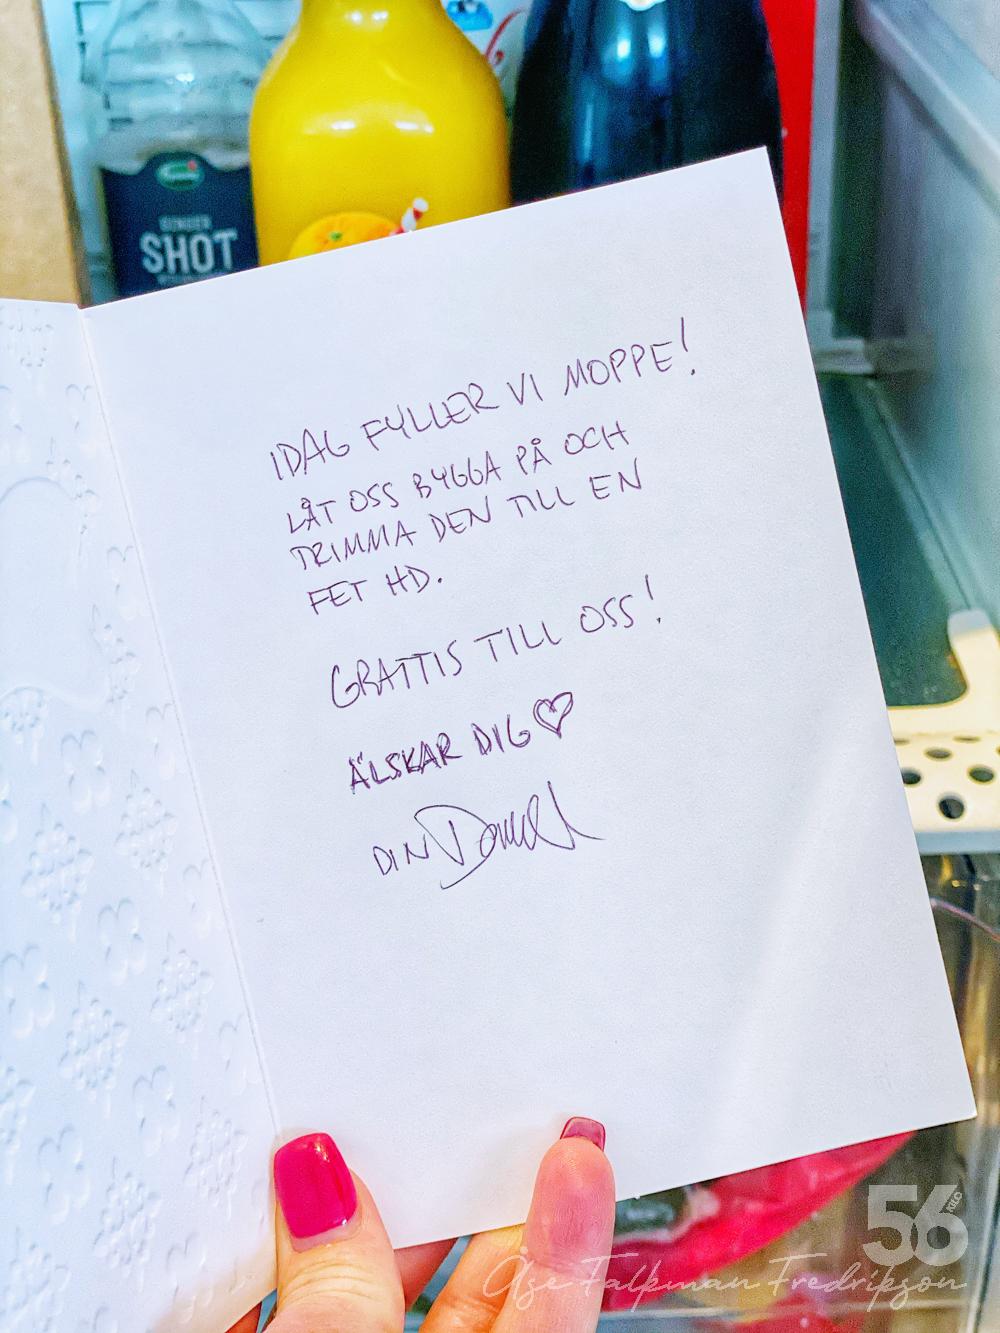 GINGER
SHOT
IDAG FYLLER VI MOPPE!
LÅT OSS BYGGA PÅ OCH
TRIMMA DEN TILL EN
FET HD.
GRATTIS TILL OSS!
ÄLSKAR DIG
DIN Daniel
56
KILO
Åse Falkman Fredrikson